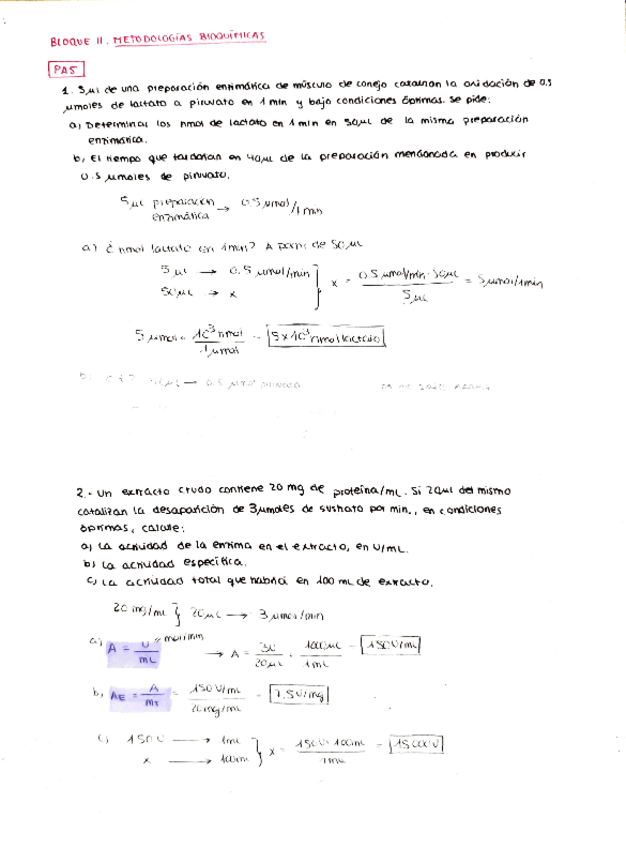 BLOQUE II. METODOLOGÍAS BIOQUÍMICAS
PA5
1. 5µl de una preparación enzimática de músculo de conejo catalizan la oxidación de 0.5
µmoles de lactato a piruvato en 1 min y bajo condiciones óptimas. Se pide:
a) Determinar los nmol de lactato en 1 min en 50µL de la misma preparación
enzimática.
b) El tiempo que tardarían en 40µL de la preparación mencionada en producir
0.5 µmoles de piruvato.
5µL preparación enzimática → 0.5 µmol/1min
a) ¿nmol lactato en 1min? A partir de 50µL
5µl → 0.5 µmol/min
50µL → x
} x = 0.5 µmol/min · 50µL / 5µL = 5µmol/1min
5µmol · 10³ nmol / 1µmol = 5x10³ nmol lactato
2.- Un extracto crudo contiene 20 mg de proteína/mL. Si 20µl del mismo
catalizan la desaparición de 3µmoles de sustrato por min., en condiciones
óptimas, calcule:
a) La actividad de la enzima en el extracto, en U/mL.
b) La actividad específica.
c) La actividad total que habría en 100 mL de extracto.
20 mg/mL } 20µL → 3µmol/min
a) A = U / mL → A = 3U / 20µL · 1000µL / 1mL = 150U/mL
b) AE = A / = 150 U/mL / 20mg/mL = 7.5U/mg
c) 150 U → 1mL
x → 100mL
} x = 150U · 100mL / 1mL = 15000U